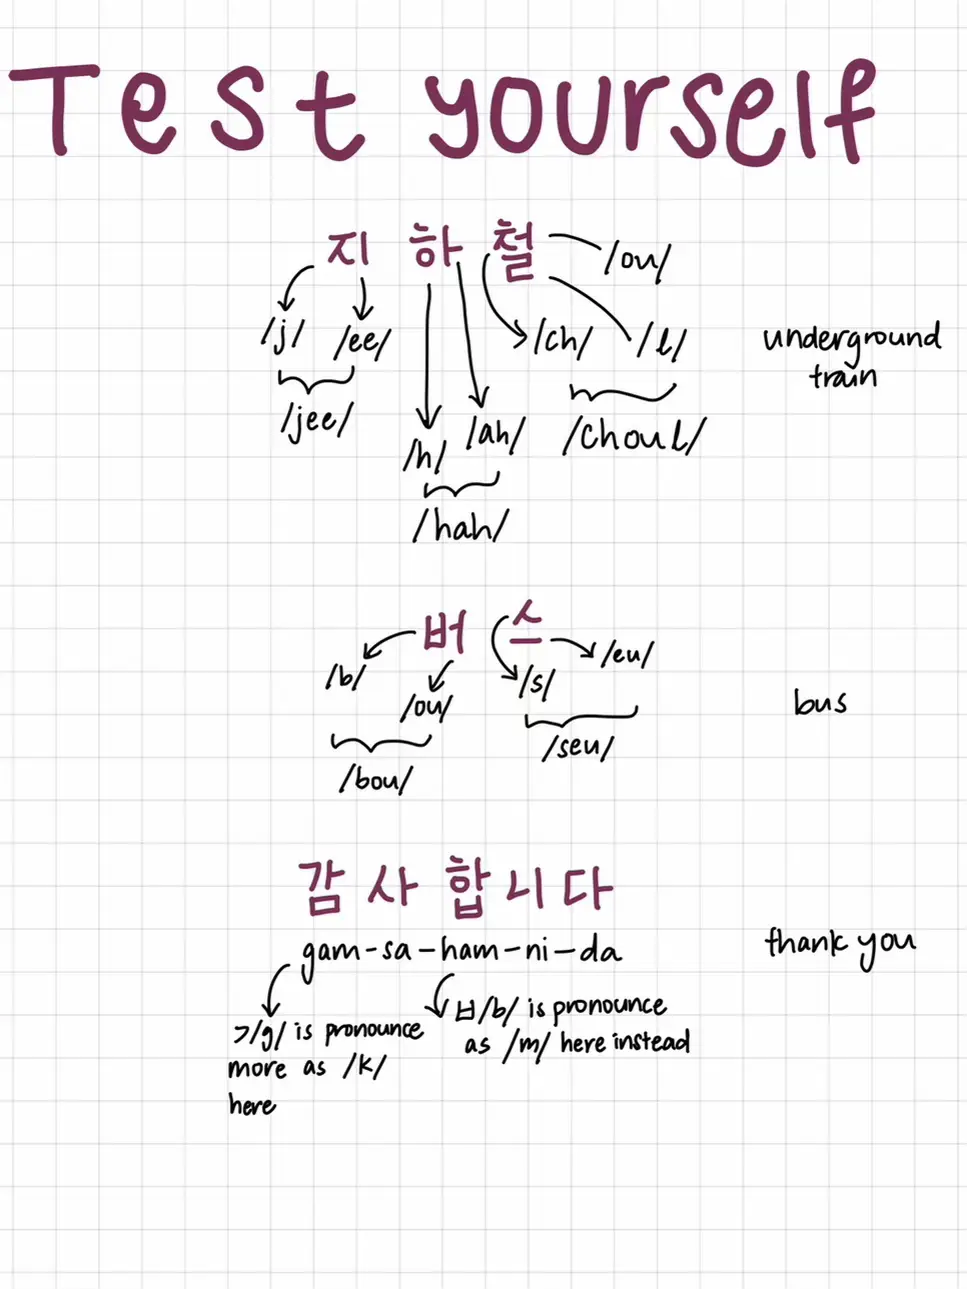 Test yourself
지 하 철
/ou/
/j/ /ee/ /ch/ /l/
underground
train
/jee/ /h/ /ah/ /choul/
/hah/
버 스
/b/ /ou/ /s/ /eu/
bus
/bou/ /seu/
감 사 합 니 다
gam-sa-ham-ni-da
thank you
ㄱ/g/ is pronounce
more as /k/
here
ㅂ/b/ is pronounce
as /m/ here instead